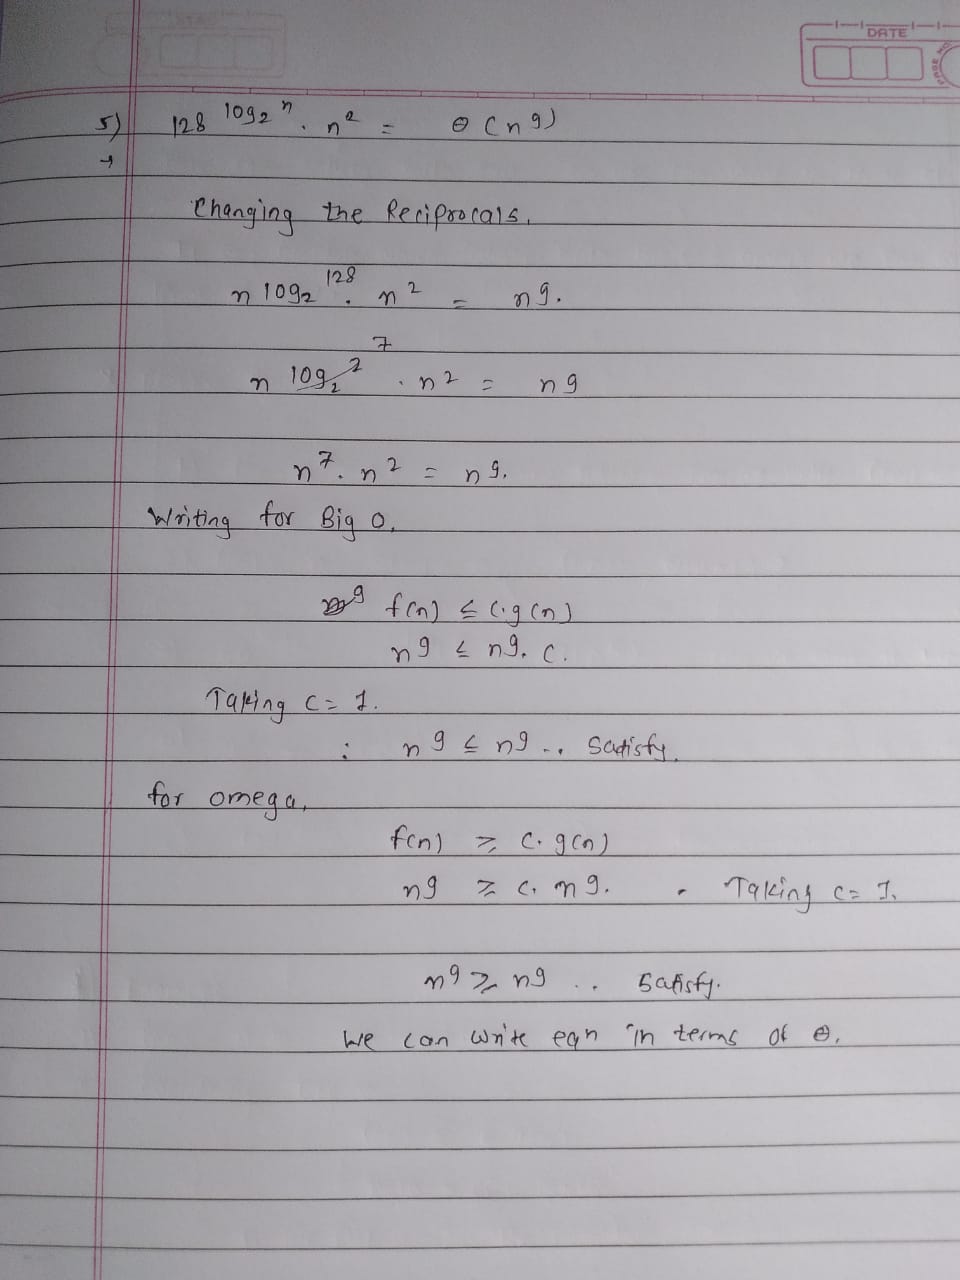 DATE
PAGE NO
5) 128^log₂ⁿ . n² = θ(n⁹)
→
Changing the Reciprocals.
n^log₂¹²⁸ . n² = n⁹.
n^log₂2⁷ . n² = n⁹
n⁷. n² = n⁹.
Writing for Big O.
f(n) ≤ c.g(n)
n⁹ ≤ n⁹. c.
Taking c = 1.
: n⁹ ≤ n⁹ .. Satisfy.
for omega,
f(n) ≥ c. g(n)
n⁹ ≥ c. n⁹. . Taking c = 1.
n⁹ ≥ n⁹ .. Satisfy.
We can write eqn in terms of θ.